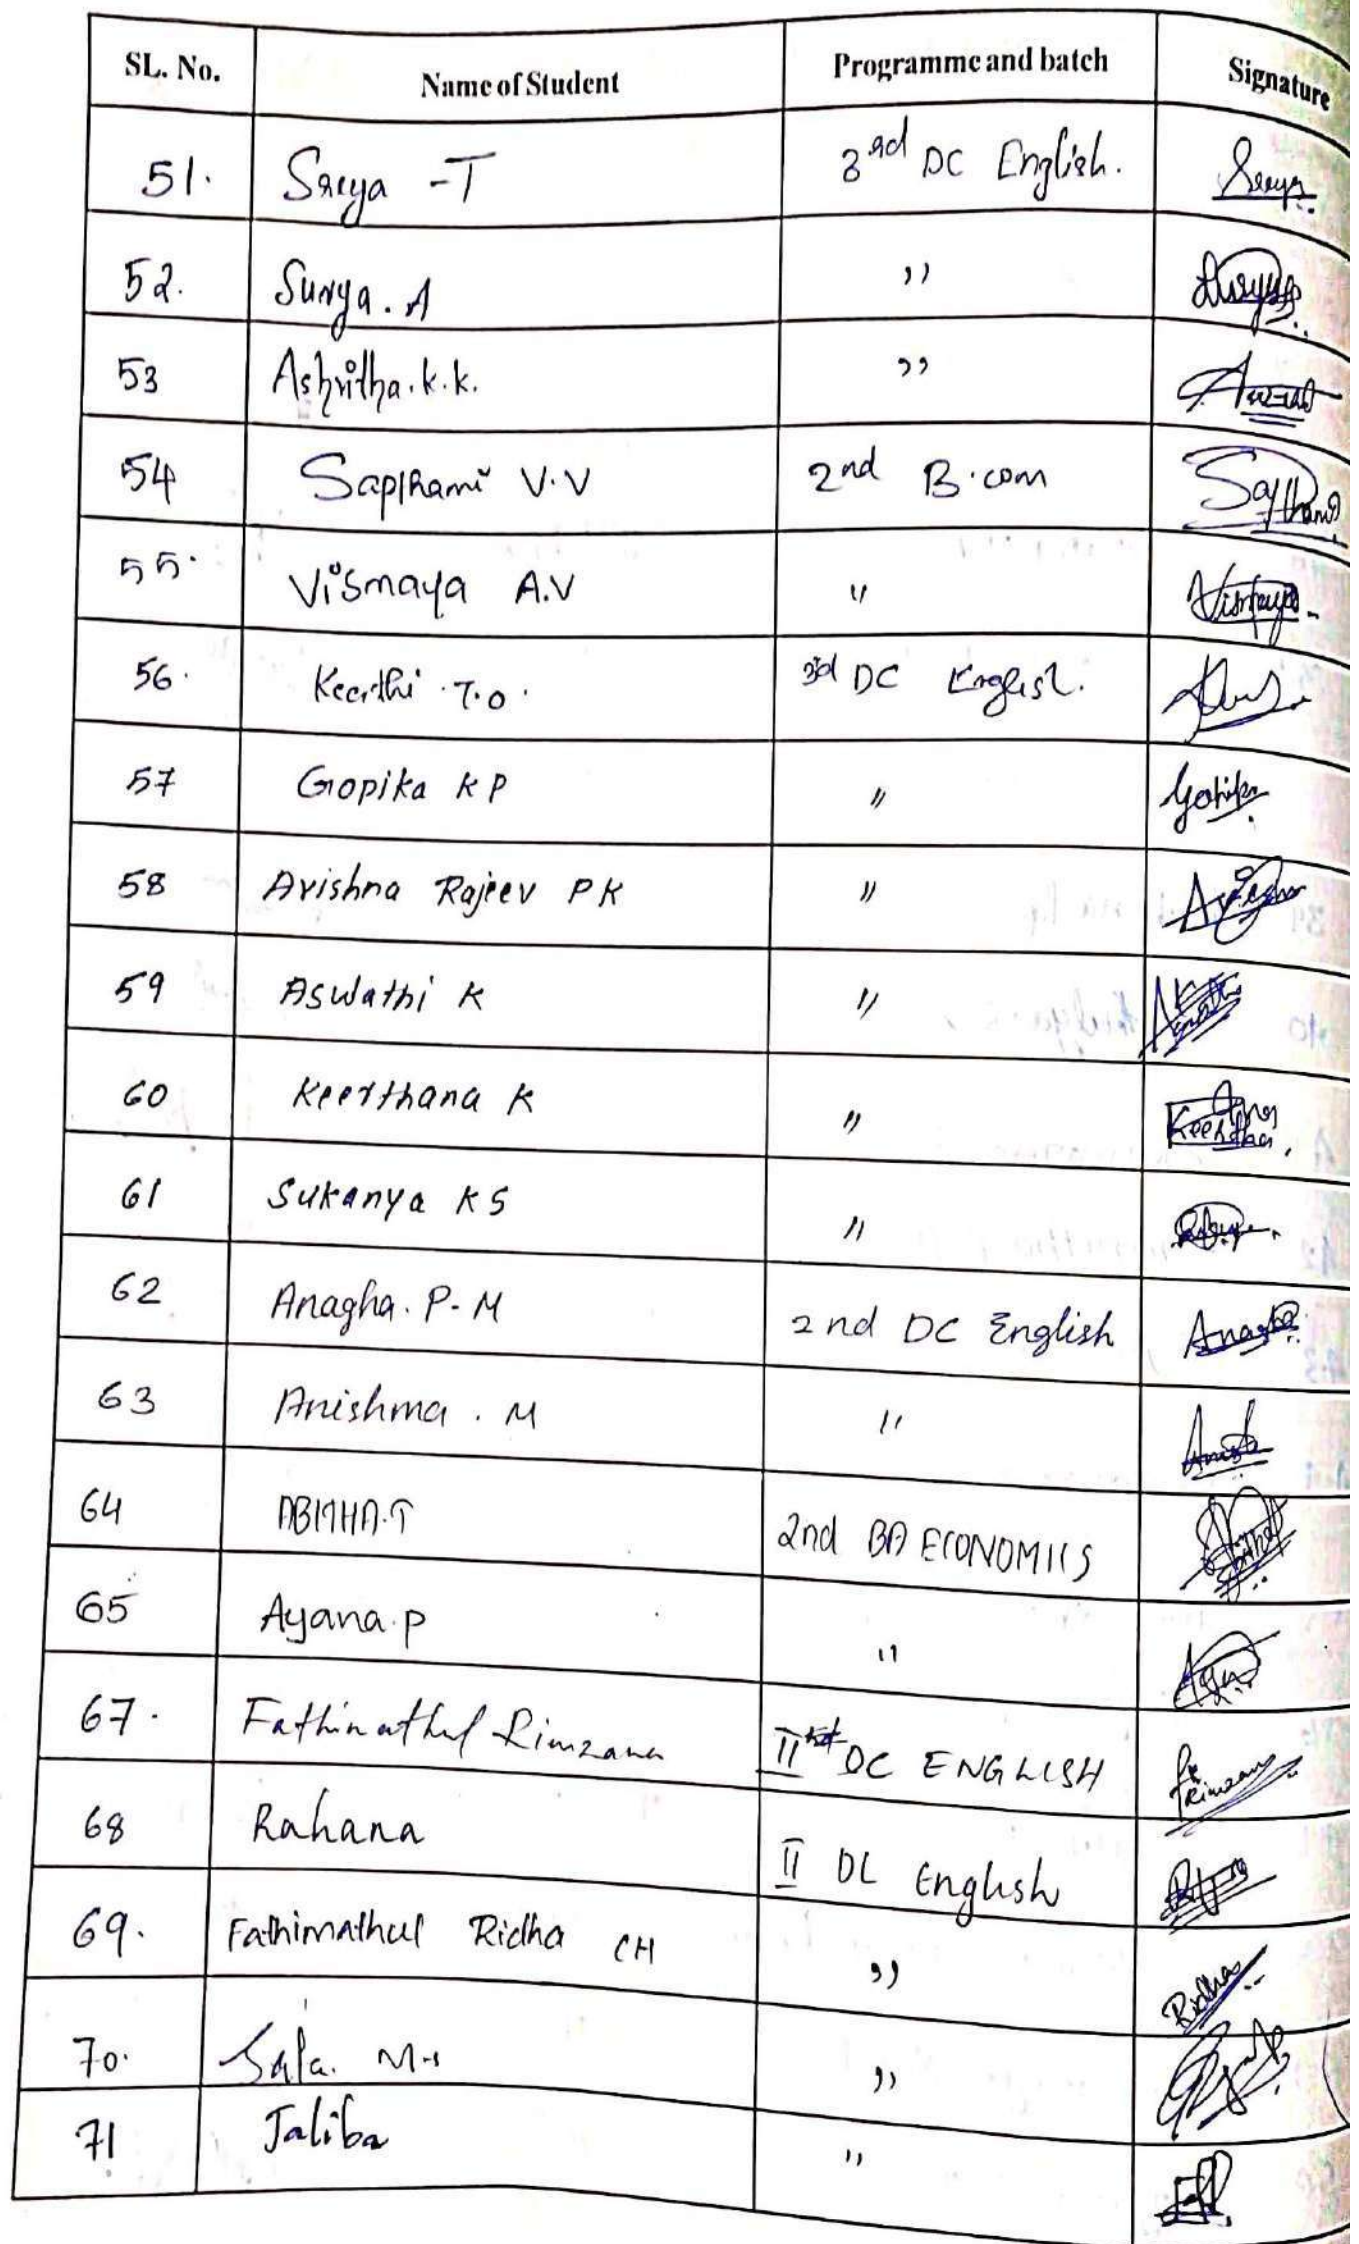 SL. No. Name of Student Programme and batch Signature
51. Sreya -T 3rd DC English. Sreya
52. Surya. A ,, Surya
53 Ashritha.k.k. ,,
54 Sapthami V.V 2nd B.com Sapthami
55. Vismaya A.V " Vismaya
56. Keerthi T.O. 3rd DC English.
57 Gopika K P " Gopika
58 Avishna Rajeev P K "
59 Aswathi K "
60 Keerthana K " Keerthana
61 Sukanya K S "
62 Anagha. P. M 2nd DC English Anagha
63 Anishma. M "
64 ABITHA.T 2nd BA ECONOMICS
65 Ayana.P "
67. Fathimathul Rimzana II nd DC ENGLISH Rimzana
68 Rahana II DC English
69. Fathimathul Ridha CH ,, Ridha
70. ,,
71 Jaliba "